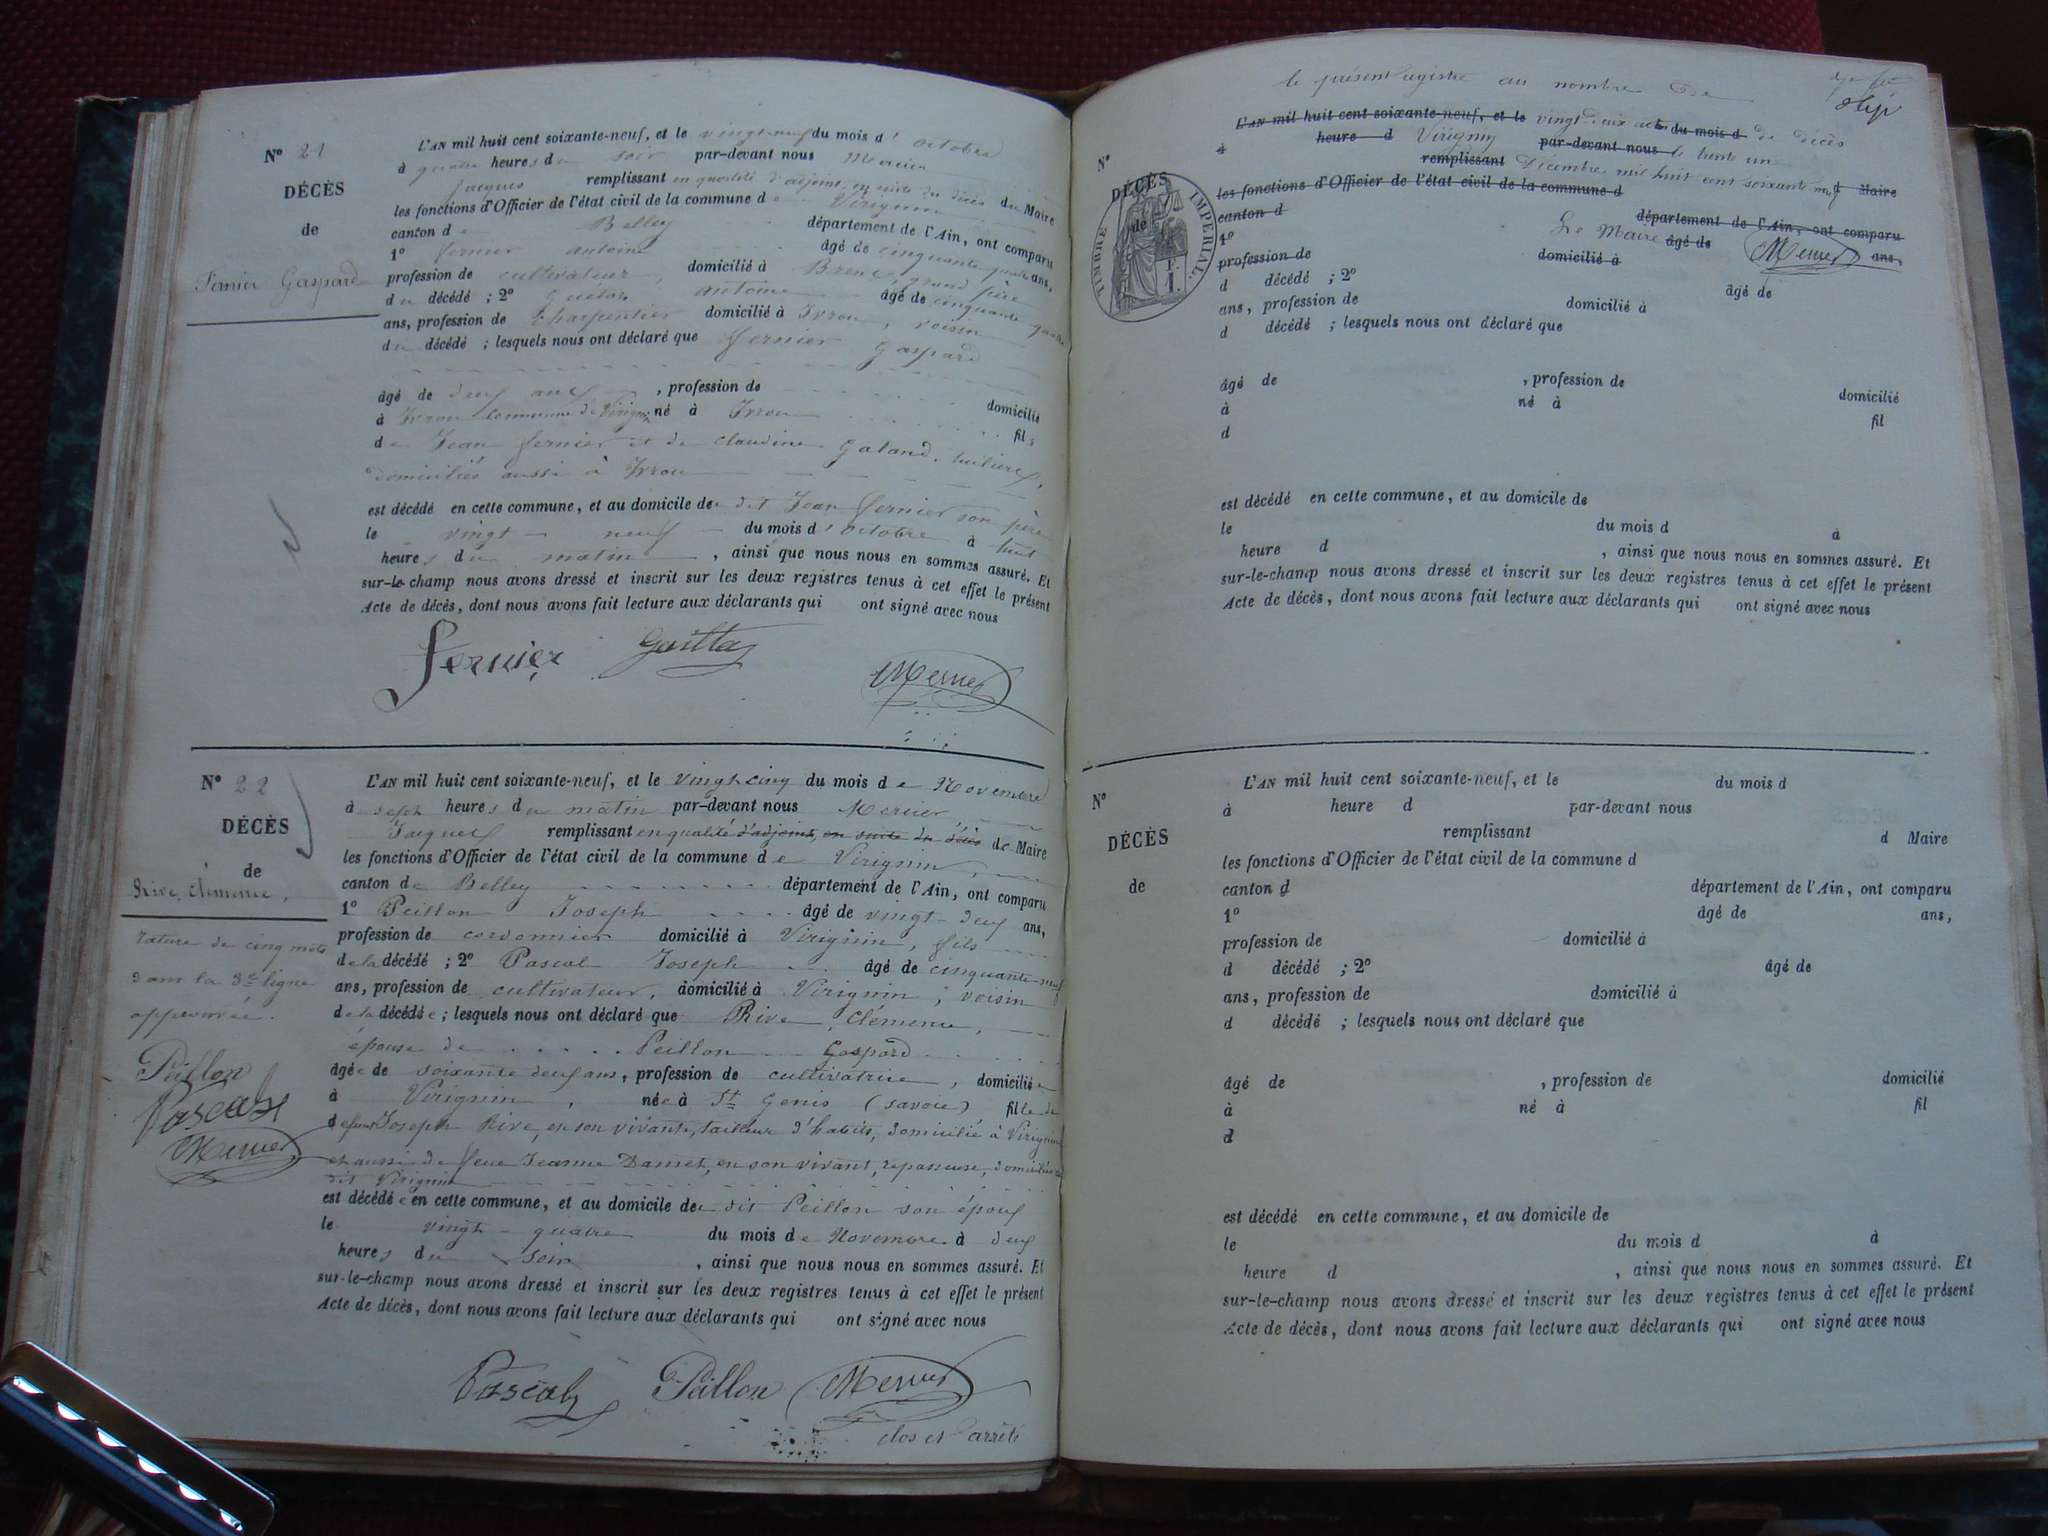 N° 21
DÉCÈS
de
Fernier Gaspard
L'AN mil huit cent soixante-neuf, et le vingt neuf du mois d'octobre
à quatre heures du soir par-devant nous Mercier
Jacques remplissant en qualité d'adjoint, en suite du décès du Maire
les fonctions d'Officier de l'état civil de la commune de Virignin
canton de Belley département de l'Ain, ont comparu
1° fernier antoine âgé de cinquante quatre ans,
profession de cultivateur, domicilié à Brens, grand père
du décédé ; 2° antoine âgé de cinquante quatre
ans, profession de Charpentier domicilié à Ivrou, voisin
du décédé ; lesquels nous ont déclaré que fernier Gaspard
âgé de deux ans, profession de domicilié
à Ivrou commune de Virignin né à Ivrou fils
de Jean fernier et de claudine Galand, tuiliers,
domiciliés aussi à Ivrou
est décédé en cette commune, et au domicile de dit Jean fernier son père
le vingt neuf du mois d'octobre à huit
heures du matin, ainsi que nous nous en sommes assuré. Et
sur-le-champ nous avons dressé et inscrit sur les deux registres tenus à cet effet le présent
Acte de décès, dont nous avons fait lecture aux déclarants qui ont signé avec nous
Fernier Mercier
N° 22
DÉCÈS
de
Rive, Clémence,
rature de cinq mots
dans la 3e ligne
approuvée.
Peillon
Pascal
Mercier
L'AN mil huit cent soixante-neuf, et le vingt cinq du mois de Novembre
à sept heures du matin par-devant nous Mercier,
Jacques remplissant en qualité d'adjoint, en suite du décès de Maire
les fonctions d'Officier de l'état civil de la commune de Virignin,
canton de Belley département de l'Ain, ont comparu
1° Peillon Joseph âgé de vingt deux ans,
profession de cordonnier domicilié à Virignin, fils
de la décédé ; 2° Pascal Joseph âgé de cinquante neuf
ans, profession de cultivateur, domicilié à Virignin, voisin
de la décédée ; lesquels nous ont déclaré que Rive, Clémence,
épouse de Peillon Gaspard
âgée de soixante deux ans, profession de cultivatrice, domiciliée
à Virignin, née à St Genis (savoie) fille de
defunt Joseph Rive, en son vivant, tailleur d'habits, domicilié à Virignin
et aussi de feue Jeanne Damet, en son vivant, repasseuse, domiciliée au
dit Virignin
est décédée en cette commune, et au domicile de dit Peillon son époux
le vingt-quatre du mois de Novembre à deux
heures du soir, ainsi que nous nous en sommes assuré. Et
sur-le-champ nous avons dressé et inscrit sur les deux registres tenus à cet effet le présent
Acte de décès, dont nous avons fait lecture aux déclarants qui ont signé avec nous
Pascal Peillon Mercier
clos et arrêté
le présent registre au nombre de
L'AN mil huit cent soixante-neuf, et le vingt deux actes du mois d de décès
à heure d Virignin par-devant nous le trente un
remplissant Décembre mil huit cent soixante neuf d Maire
les fonctions d'Officier de l'état civil de la commune d
canton d département de l'Ain, ont comparu
1° Le Maire âgé de Mercier ans,
profession de domicilié à
d décédé ; 2° âgé de
ans, profession de domicilié à
d décédé ; lesquels nous ont déclaré que
N°
DÉCÈS
de
TIMBRE IMPERIAL
1 F.
âgé de , profession de domicilié
à né à fil
d
est décédé en cette commune, et au domicile de
le du mois d à
heure d , ainsi que nous nous en sommes assuré. Et
sur-le-champ nous avons dressé et inscrit sur les deux registres tenus à cet effet le présent
Acte de décès, dont nous avons fait lecture aux déclarants qui ont signé avec nous
N°
DÉCÈS
de
L'AN mil huit cent soixante-neuf, et le du mois d
à heure d par-devant nous
remplissant d Maire
les fonctions d'Officier de l'état civil de la commune d
canton d département de l'Ain, ont comparu
1° âgé de ans,
profession de domicilié à
d décédé ; 2° âgé de
ans, profession de domicilié à
d décédé ; lesquels nous ont déclaré que
âgé de , profession de domicilié
à né à fil
d
est décédé en cette commune, et au domicile de
le du mois d à
heure d , ainsi que nous nous en sommes assuré. Et
sur-le-champ nous avons dressé et inscrit sur les deux registres tenus à cet effet le présent
Acte de décès, dont nous avons fait lecture aux déclarants qui ont signé avec nous